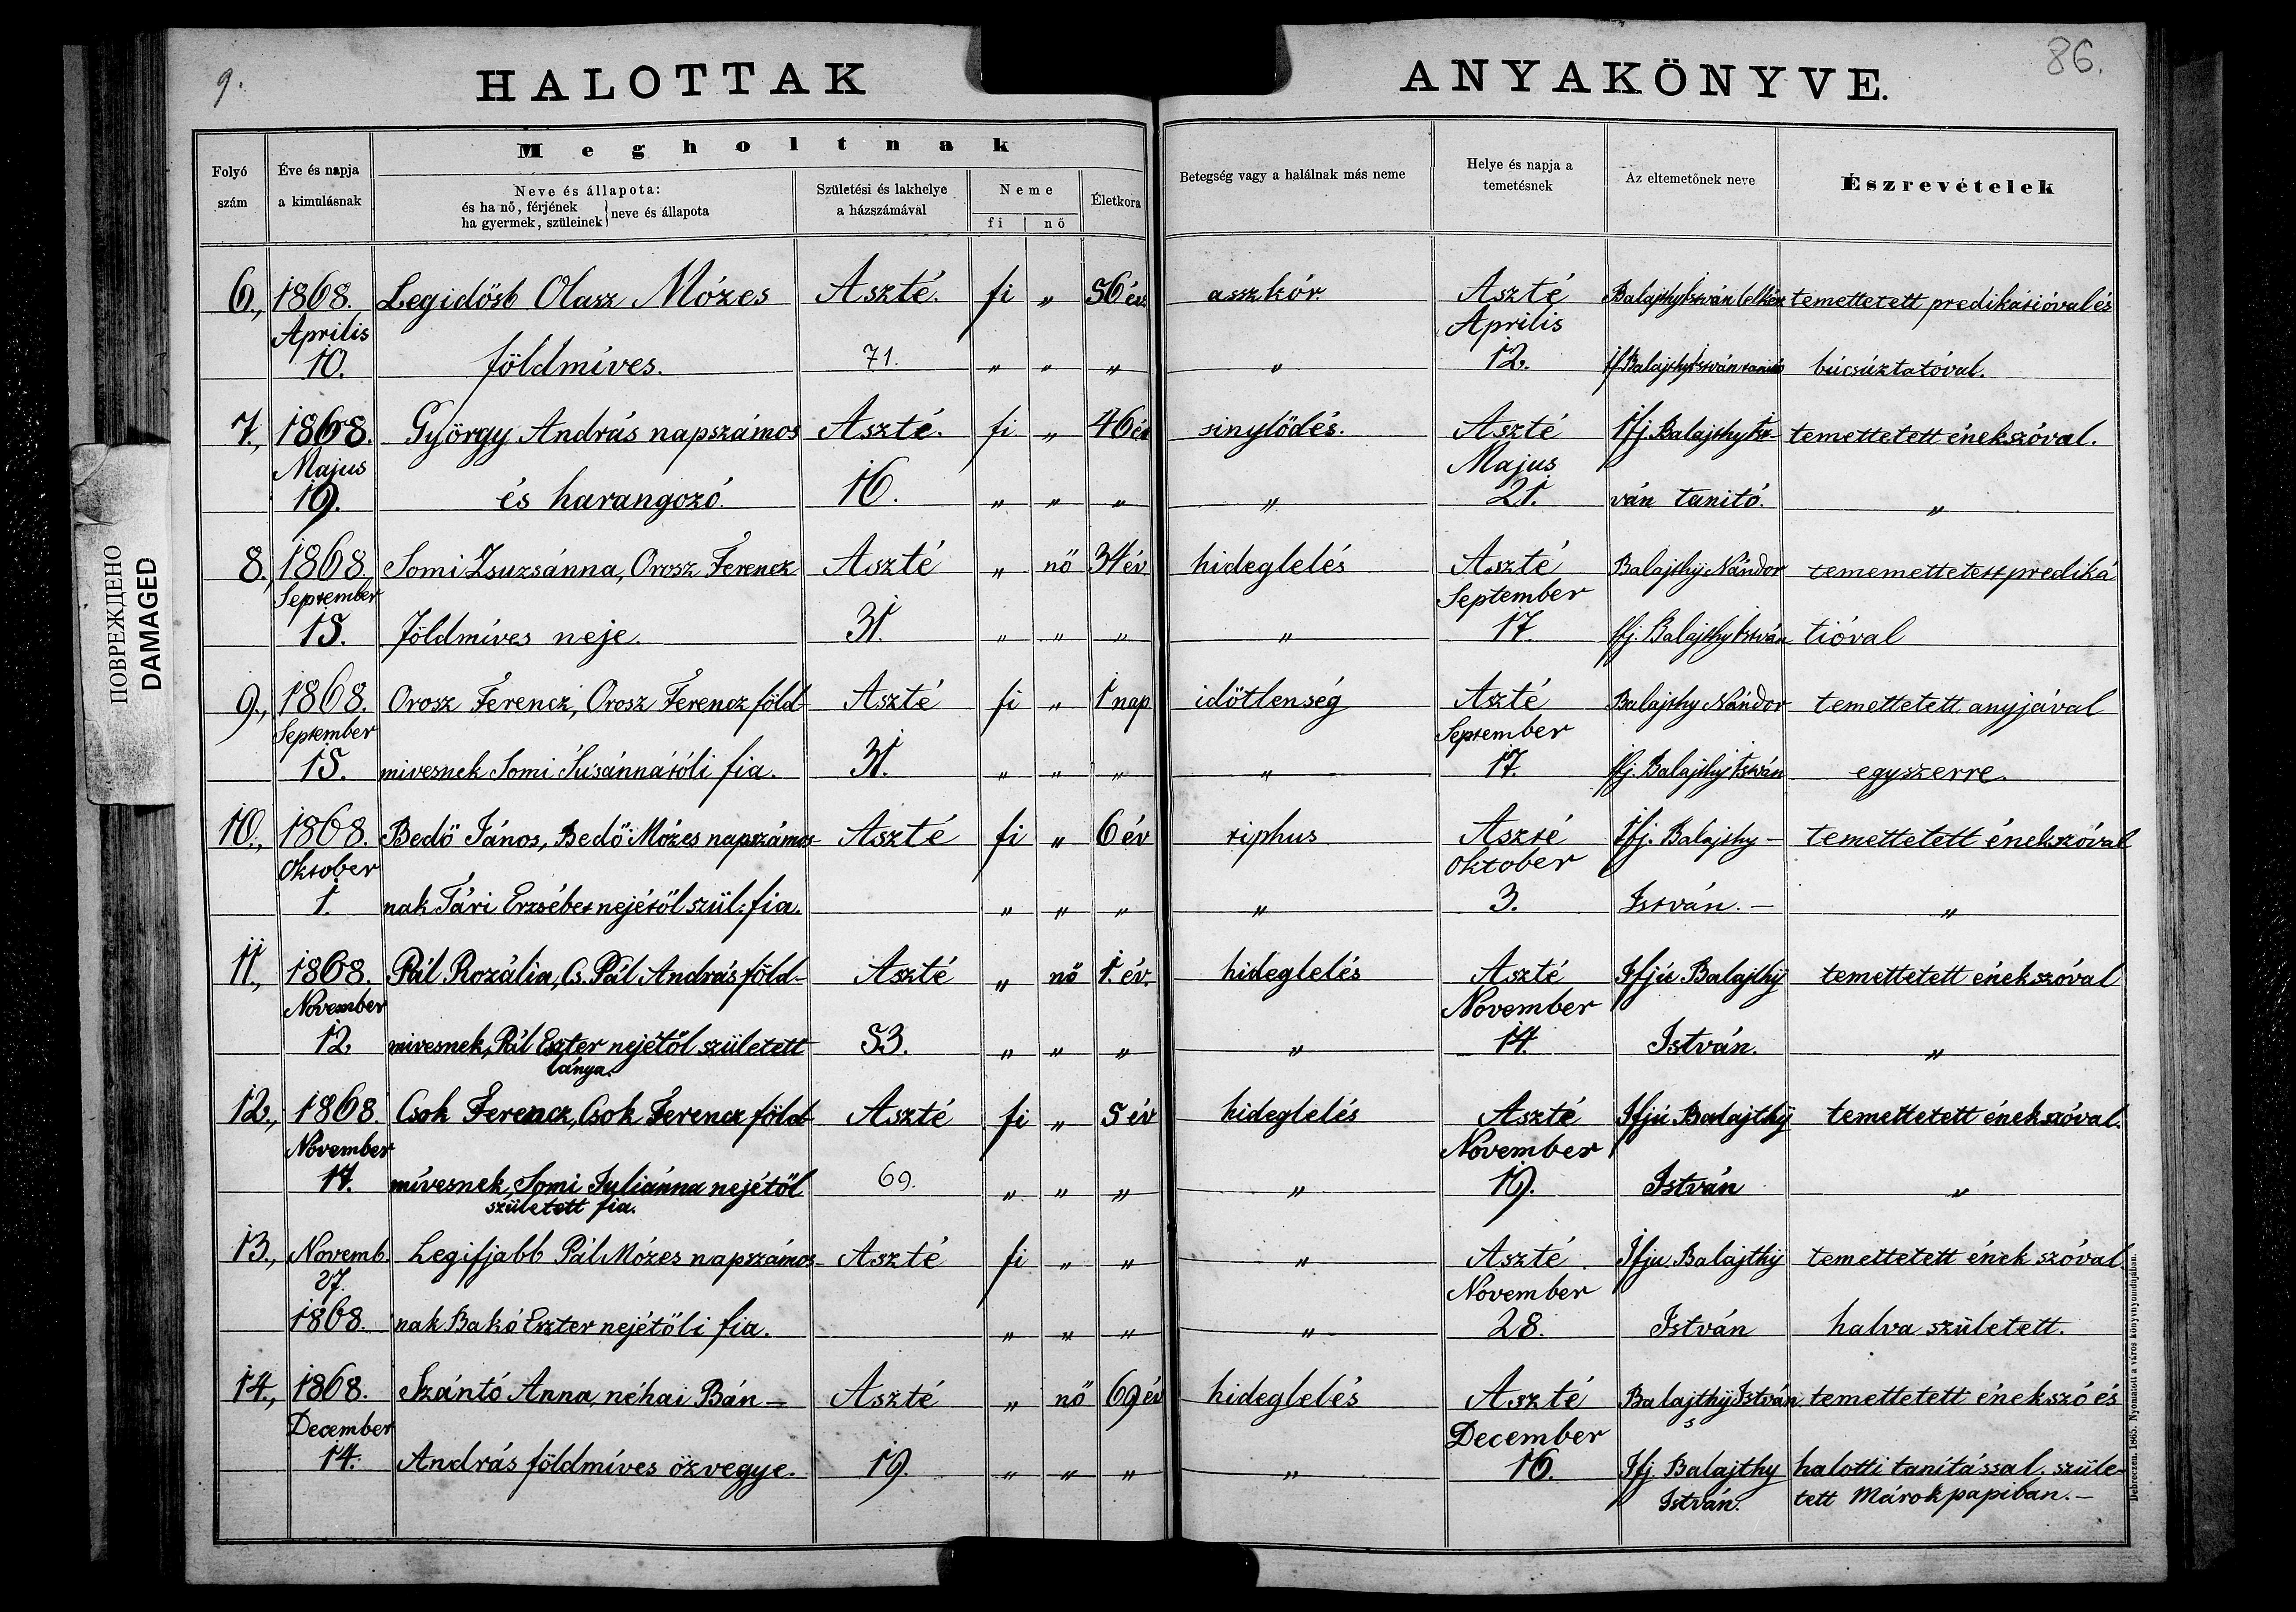 9.
HALOTTAK
ANYAKÖNYVE.
86.
ПОВРЕЖДЕНО
DAMAGED
Folyó szám
Éve és napja a kimulásnak
Megholtnak
Neve és állapota:
és ha nő, férjének
ha gyermek, szüleinek
neve és állapota
Születési és lakhelye a házszámával
Neme
fi
nő
Életkora
Betegség vagy a halálnak más neme
Helye és napja a temetésnek
Az eltemetőnek neve
Észrevételek
6., 1868. Legidősb Olasz Mózes Aszté. fi „ 56 év. aszkór. Aszté Balajthy István lelkész temettetett predikátióval és
Aprilis Aprilis
10. földmíves. 71. „ „ „ „ 12. if Balajthy István tanitó búcsúztatóval.
7., 1868. György András napszámos Aszté. fi „ 46 év sinylödés. Aszté Ifj. Balajthy Ist- temettetett énekszóval.
Majus Majus
19. és harangozó. 16. „ „ „ „ 21. ván tanitó. „
8., 1868. Somi Zsuzsánna, Orosz Ferencz Aszté „ nö 34 év hideglelés Aszté Balajthy Nándor tememettetett prediká
September September
15. földmíves neje. 31. „ „ „ „ 17. Ifj. Balajthy István tióval
9., 1868. Orosz Ferencz, Orosz Ferencz föld- Aszté fi „ 1 nap idötlenség Aszté Balajthy Nándor temettetett anyjával
September September
15. mivesnek Somi Súsánnatóli fia. 31. „ „ „ „ 17. Ifj. Balajthy István egyszerre.
10., 1868. Bedö János, Bedö Mózes napszámos- Aszté fi „ 6 év tiphus Aszté Ifj. Balajthy – temettetett énekszóval
Oktober Oktober
1. nak Tári Erzsébet nejétöl szül. fia. „ „ „ „ 3. István. – „
11., 1868. Pál Rozália, Cs. Pál András föld- Aszté „ nö 1. év. hideglelés Aszté Ifjú Balajthÿ temettetett énekszóval
November November
12. mivesnek, Pál Eszter nejétől született 53. „ „ „ „ 14. István. „
lánya.
12., 1868. Csok Ferencz, Csok Ferencz föld- Aszté fi „ 5 év hideglelés Aszté Ifjú Balajthÿ temettetett énekszóval.
November November
17. mívesnek, Somi Juliánna nejétől 69. „ „ „ „ 19. István „
született fia.
13., Novemb. Legifjabb Pál Mózes napszámos- Aszté fi „ „ „ Aszté. Ifju Balajthÿ temettetett ének szóval.
27. November
1868. nak Bakó Eszter nejétöli fia. „ „ „ „ 28. István halva született.
14., 1868. Szántó Anna, néhai Bán – Aszté „ nö 69 év hideglelés Aszté Balajthÿ István temettetett énekszó és
December December s
14. András földmíves özvegye. 19. „ „ „ „ 16. Ifj Balajthy halotti tanitással. szüle-
István. tett Márokpapiban. –
Debreczen. 1865. Nyomatott a város könyvnyomdájában.